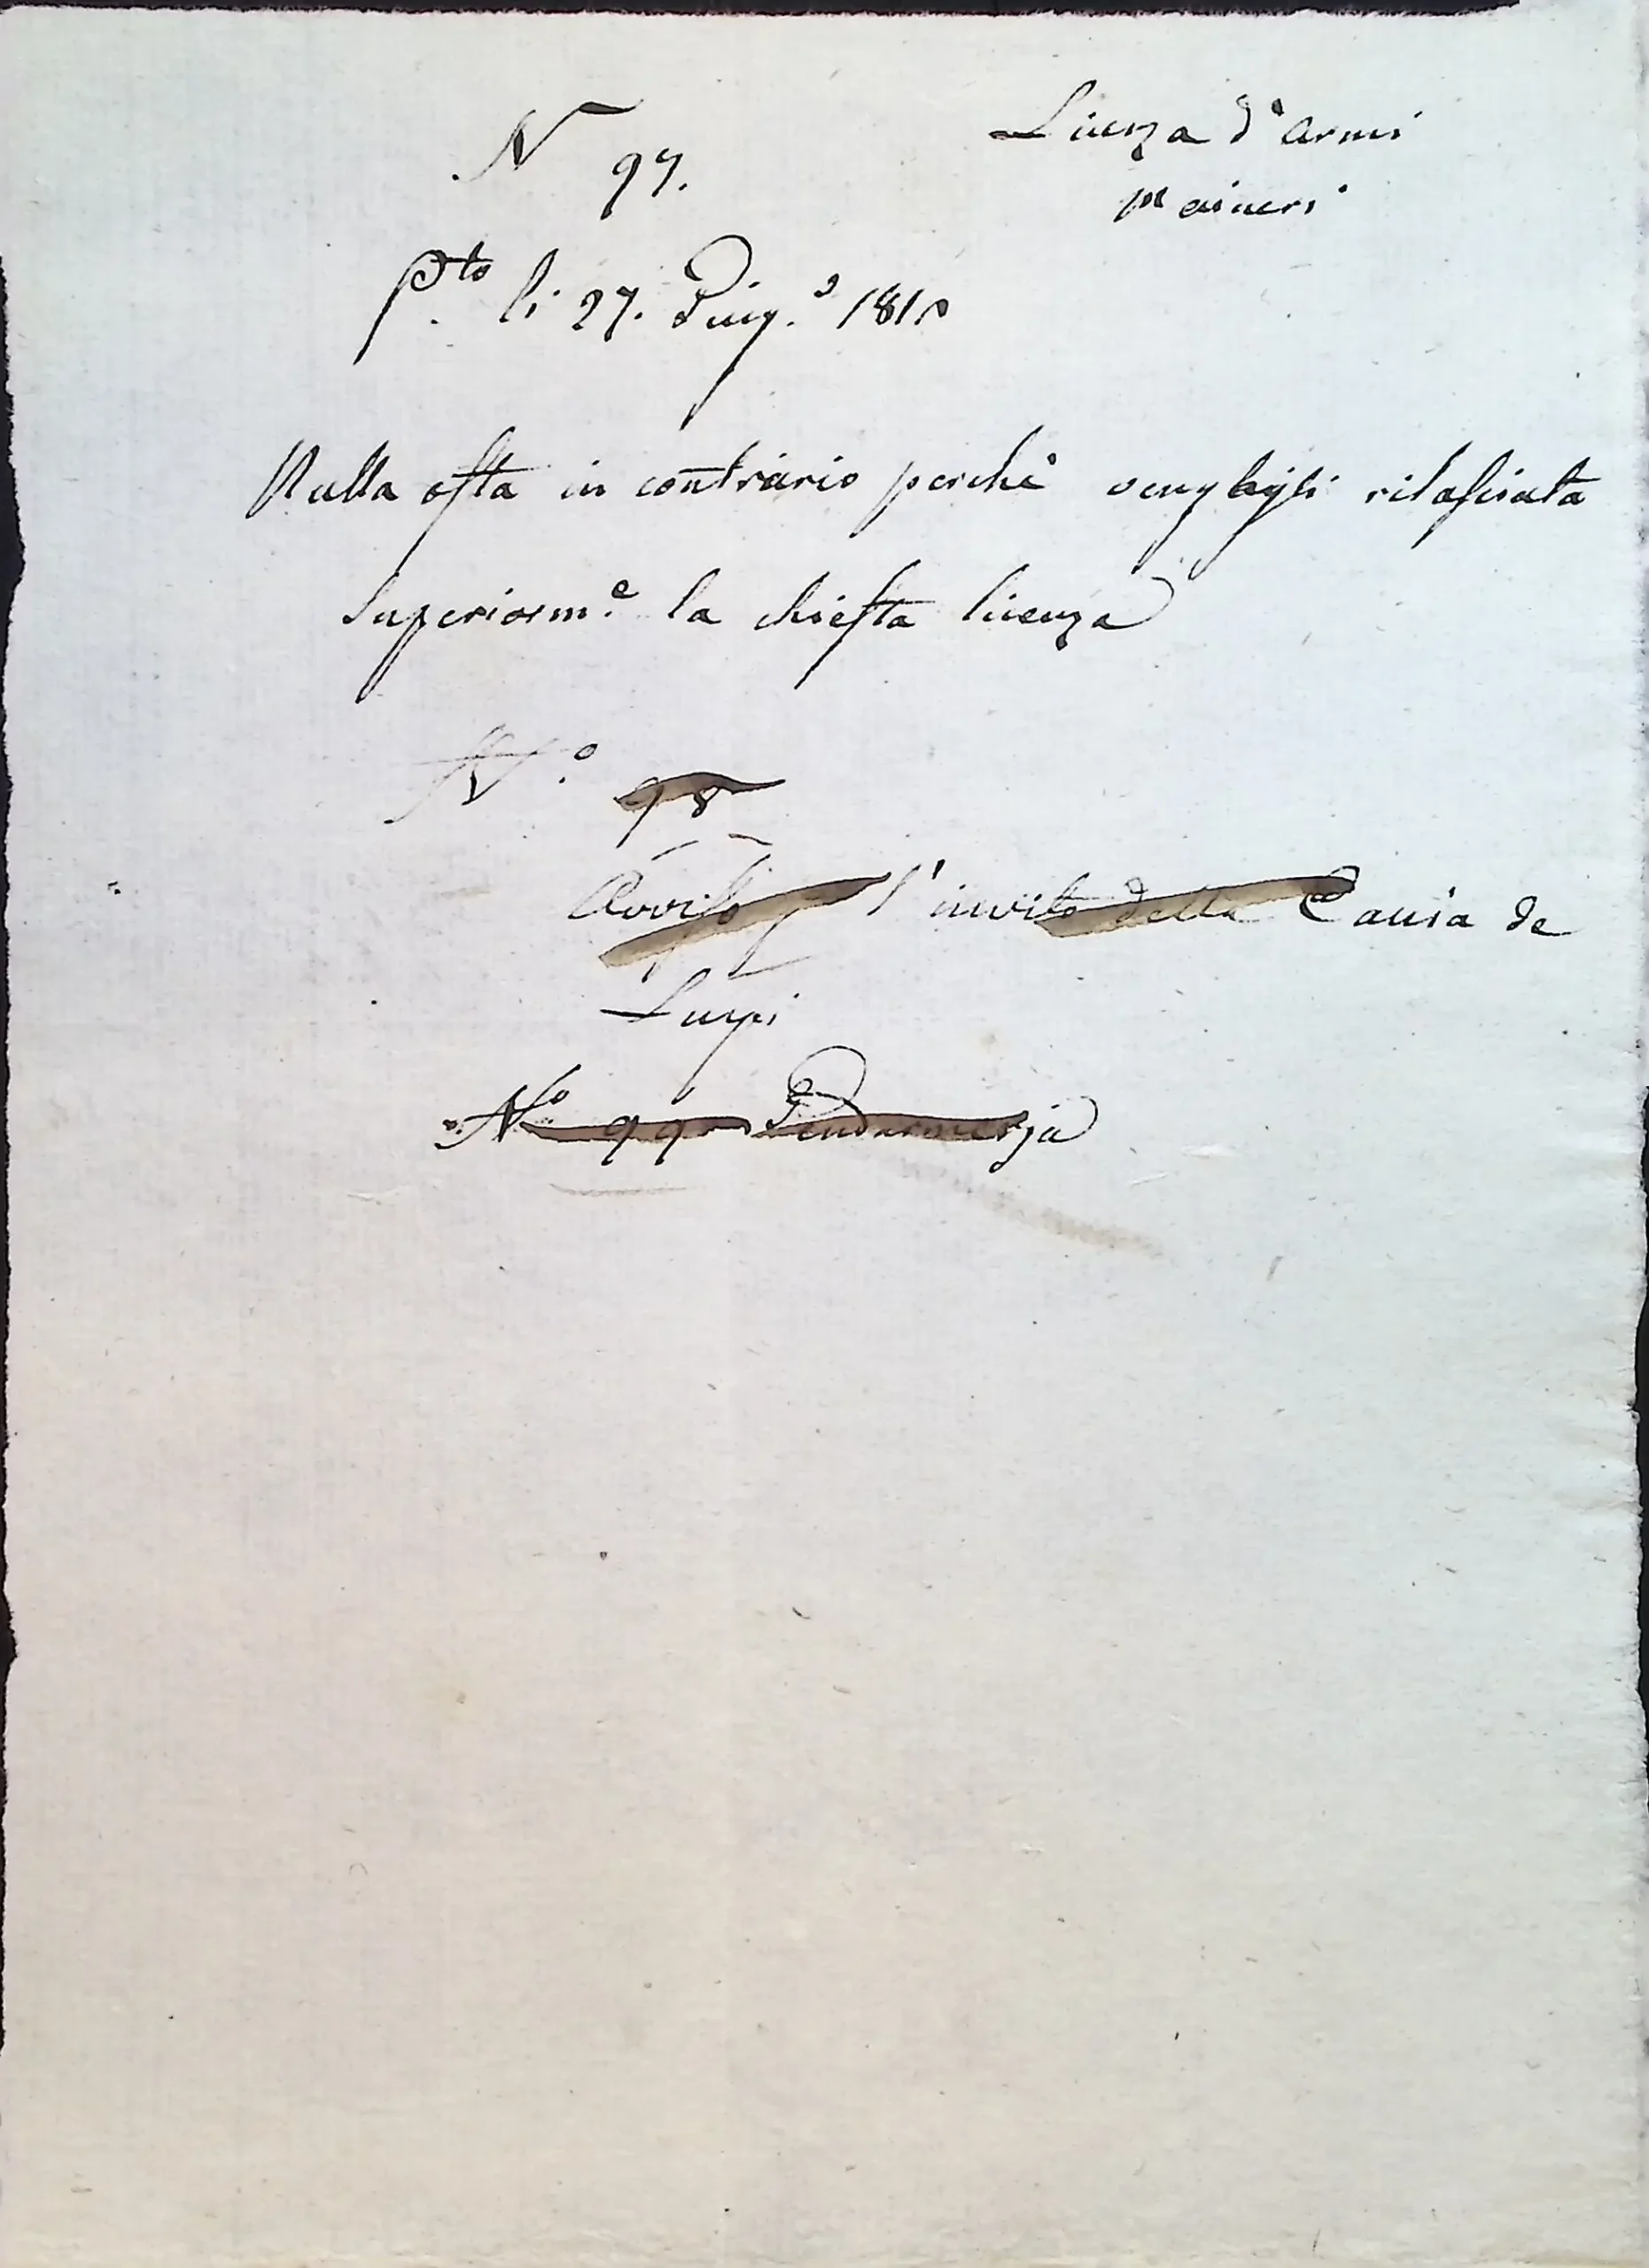 N 97.
Licenza d'armi
Maineri
P.to li 27. Giug.o 1810
Nulla osta in contrario perchè vengagli rilasciata
Superiorm.e la chiesta licenza
N.o 98
Avviso l'invito della Caccia de
Lupi
N.o 99 Gendarmerja